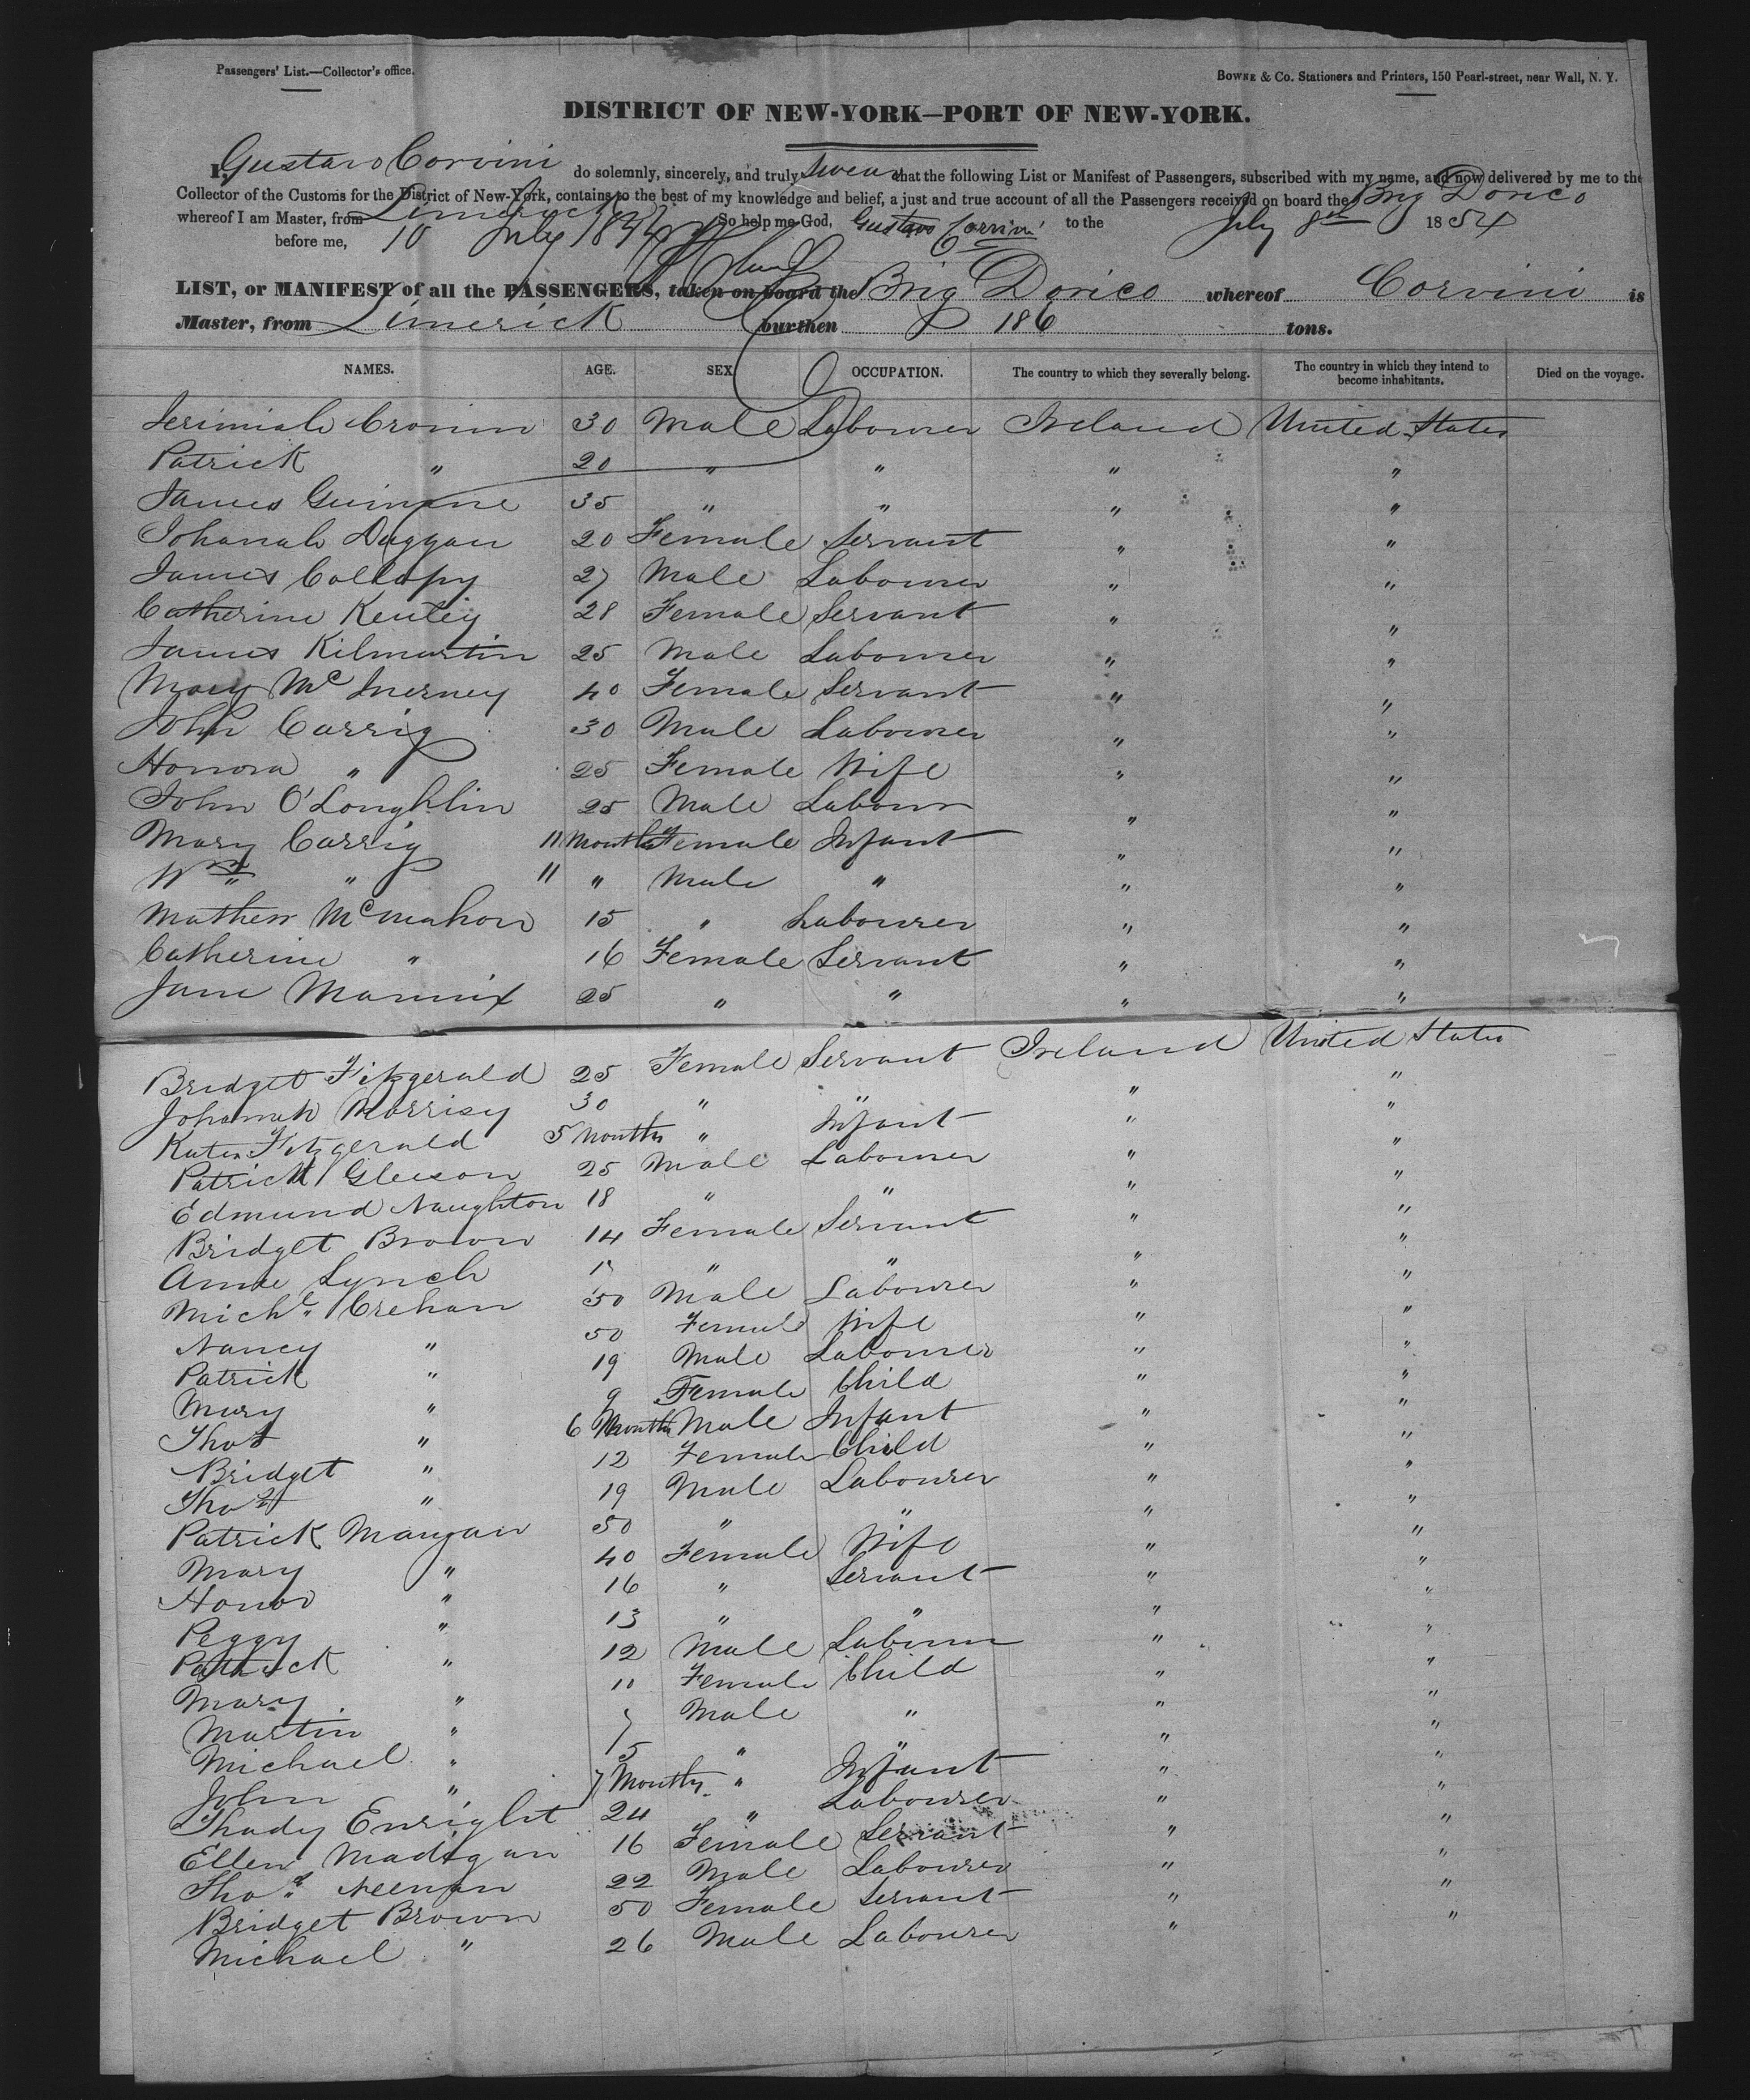 Passengers' List.—Collector's office.
Bowne & Co. Stationers and Printers, 150 Pearl-street, near Wall, N. Y.
DISTRICT OF NEW-YORK—PORT OF NEW-YORK.
I, Gustavo Corvini do solemnly, sincerely, and truly swear that the following List or Manifest of Passengers, subscribed with my name, and now delivered by me to the
Collector of the Customs for the District of New-York, contains to the best of my knowledge and belief, a just and true account of all the Passengers received on board the Brig Dorico
whereof I am Master, from Limerick So help me God, Gustavo Corvini to the July 8th 1854
before me, 10 July 1854
LIST, or MANIFEST of all the PASSENGERS, taken on board the Brig Dorico whereof Corvini is
Master, from Limerick burthen 186 tons.
NAMES. AGE. SEX OCCUPATION. The country to which they severally belong. The country in which they intend to become inhabitants. Died on the voyage.
Jerimiah Cronin 30 Male Labourer Ireland United States
Patrick " 20 " " " "
James Guinane 35 " " " "
Johanah Duggan 20 Female Servant " "
James Collopy 27 Male Labourer " "
Catherine 28 Female Servant " "
James Kilmartin 25 Male Labourer " "
Mary McInerney 40 Female Servant " "
John Carrig 30 Male Labourer " "
Honora " 25 Female Wife " "
John O'Loughlin 25 Male Labourer " "
Mary Carrig 11 Months Female Infant " "
Wm " 11 " Male " " "
Mathew McMahon 15 " Labourer " "
Catherine " 16 Female Servant " "
Jane Mannix 25 " " " "
Bridget Fitzgerald 25 Female Servant Ireland United States
Johannah Morrisy 30 " " " "
Kate Fitzgerald 5 Months " Infant " "
Patrick Gleeson 25 Male Labourer " "
Edmund Naughton 18 " " " "
Bridget Brown 14 Female Servant " "
Anne Lynch " " " "
Michl Crehan 50 Male Labourer " "
Nancy " 50 Female Wife " "
Patrick " 19 Male Labourer " "
Mary " 9 Female Child " "
Thos " 6 Months Male Infant " "
Bridget " 12 Female Child " "
Thos " 19 Male Labourer " "
Patrick Mangan 50 " " " "
Mary " 40 Female Wife " "
Honor " 16 " Servant " "
Peggy " 13 " " " "
Patrick " 12 Male Labourer " "
Mary " 10 Female Child " "
Martin " 7 Male " " "
Michael " 5 " " " "
John " 7 Months " Infant " "
Thady Enright 24 " Labourer " "
Ellen Madigan 16 Female Servant " "
Thos Neenan 22 Male Labourer " "
Bridget Brown 50 Female Servant " "
Michael " 26 Male Labourer " "